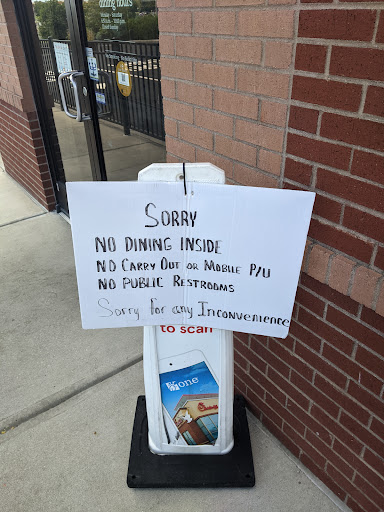 dining hours
SORRY
NO DINING INSIDE
NO CARRY OUT OR MOBILE P/U
NO PUBLIC RESTROOMS
Sorry for any Inconvenience
to scan
one